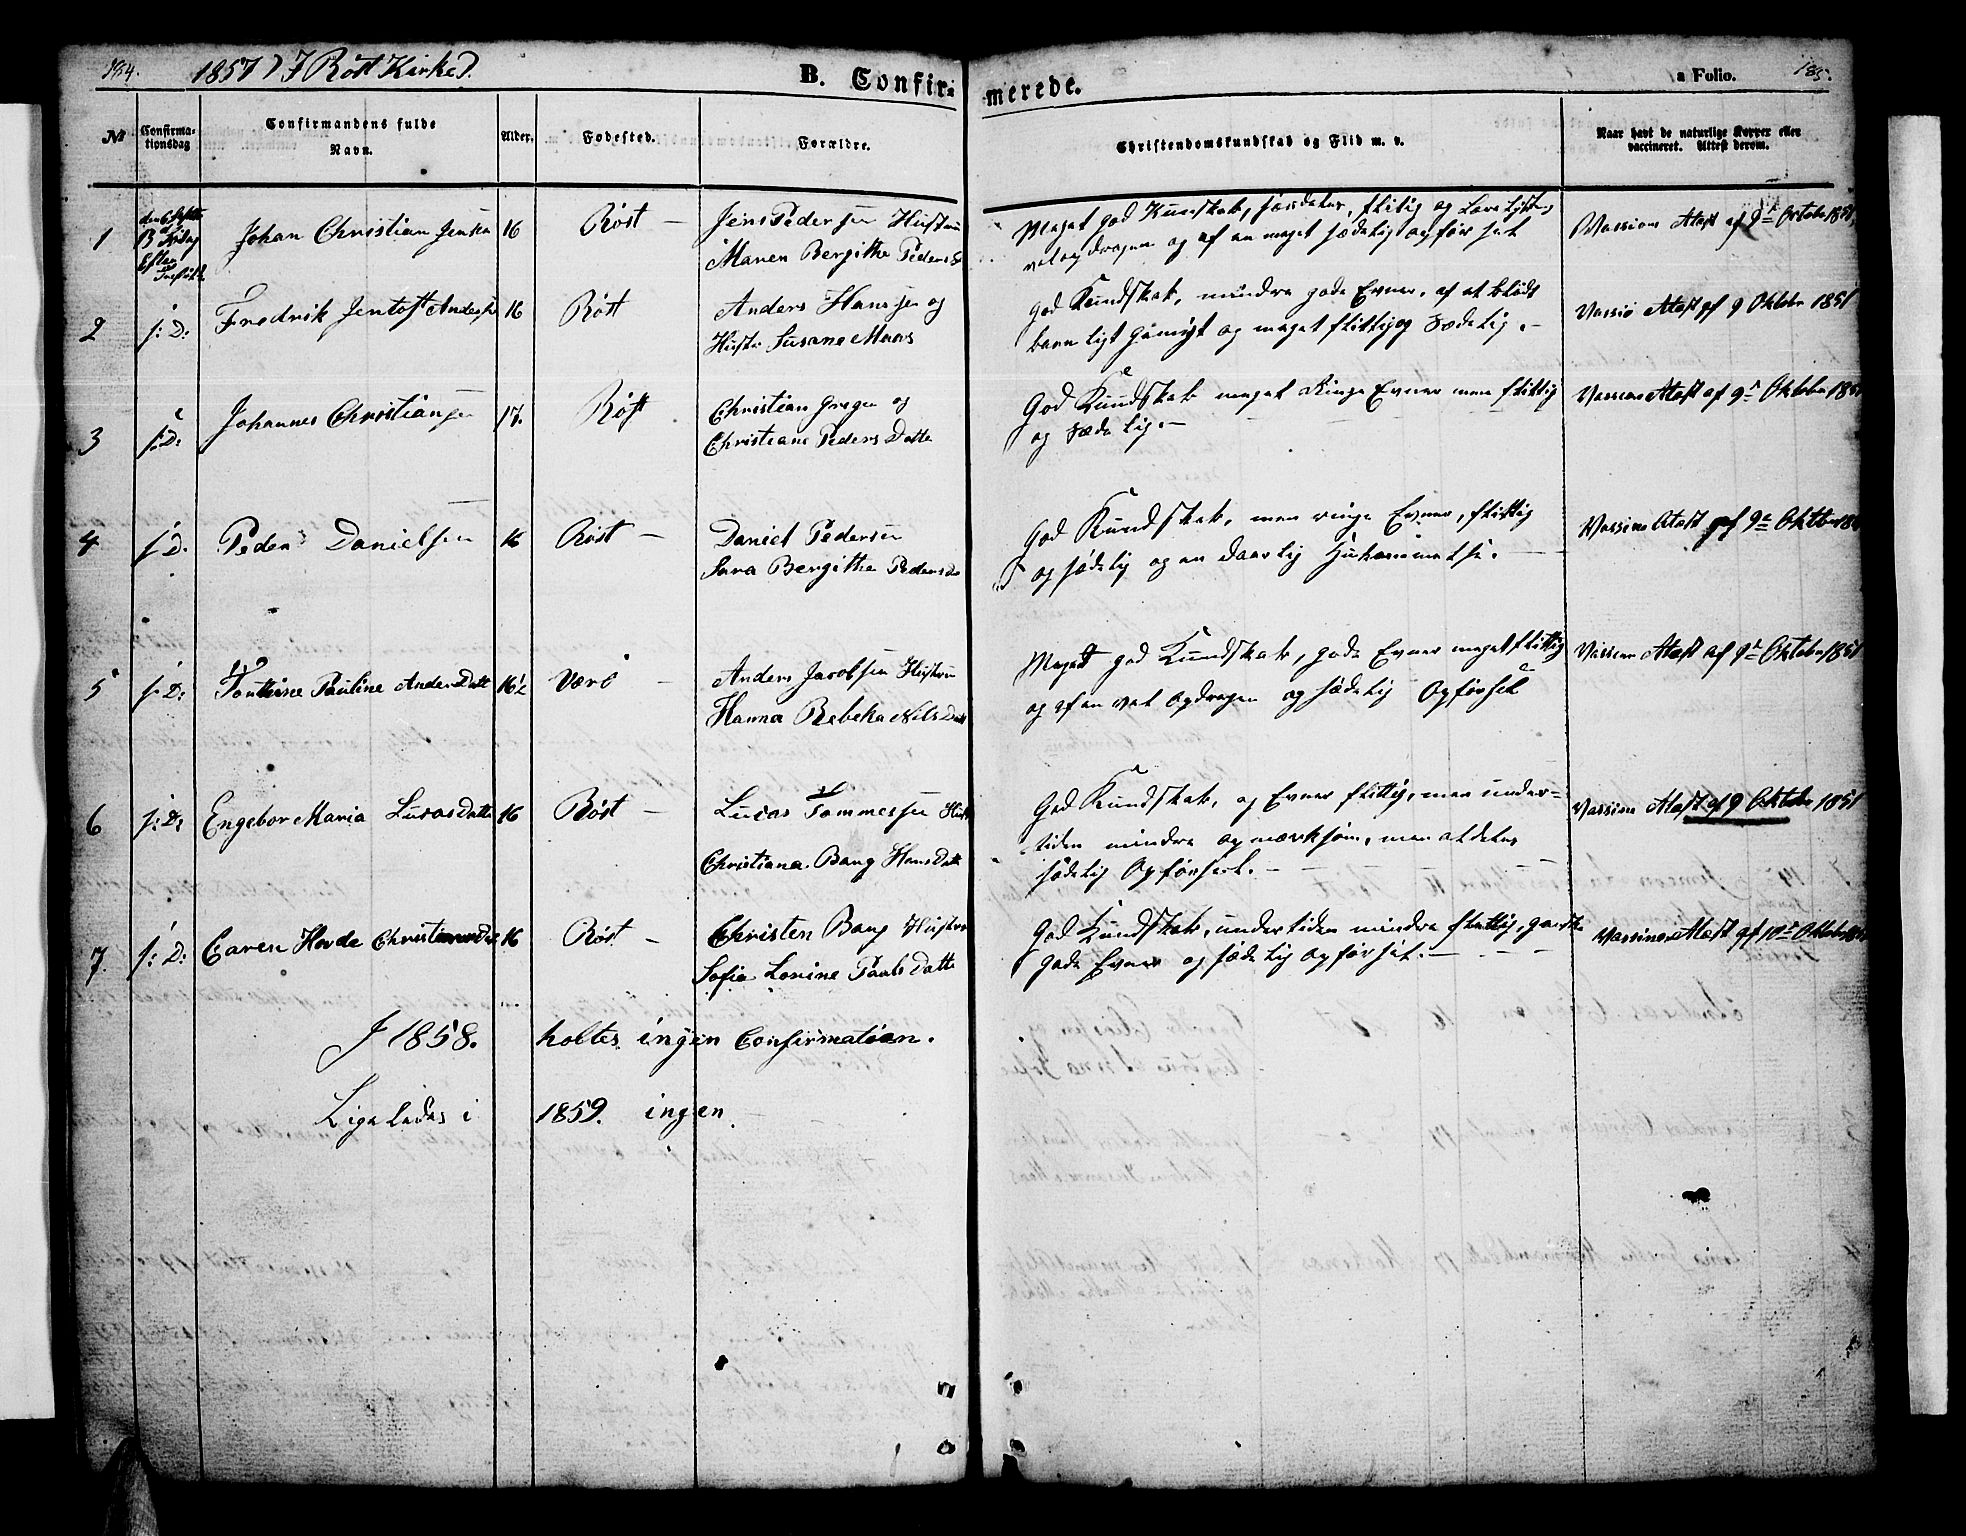 184.
1857) I Röst Kirke).
B. Confir-
merede.
a Folio.
185.
No
Confirma-
tionsdag
Confirmandens fulde
Navn.
Alder.
Fødested.
Forældre.
Christendomskundskab og Flid m. v.
Naar havt de naturlige Kopper eller
vaccineret. Attest derom.
1
Efter
Johan Christian Jensen
16
Röst
Jens Pedersen Hustru
Maren Bergithe Peders
Meget god Kundskab, flitig og
og af en meget sædelig opførsel
Vassions Atest af 9de Octobr 1851
2
s: D:
Fredrik Jentoft Anders
16
Röst
Anders Hanssen og
Hustr Susane Maas
God Kundskab, mindre gode Evner, af et blödt
barnligt og meget flittig og sædelig.
Vassi Atest af 9 Oktobr 1851
3
s: D:
Johannes Christiansen
17.
Röst
Christian Greger og
Christiane Peders Datte
God Kundskab meget ringe Evner men flittig
og sædelig.
Vassions Atest af 9de Oktobr 1851
4
s: D:
Peder Danielsen
16
Röst
Daniel Pedersen
Sara Bergithe Peders D
God Kundskab, men ringe Evner, flittig
og sødelig og en daarlig
Vassions Atest af 9de Oktbr
5
s: D:
Pauline Anders Datt
16½
Værö
Anders Jacobsen Hustru
Hanna Rebeka Nils Datt
Meget god Kundskab, gode Evner meget flittig
og af en vel opdragen og sødelig Opførsel
Vassions Atest af 9de Oktobr 1851
6
s: D:
Engebor Maria Lucas Datte
16
Röst
Lucas Tommessen Hust
Christiana Bang Hans Datt
God Kundskab, og Evner flittig, men under-
tiden mindre opmærksom, men
sødelig Opførsel.
Vassions Atest af 9 Oktobr 1851
7.
s: D:
Caren Hovde Christians Dat
16
Röst
Christen Bang Hustru
Sofia Lovine Pauls Datte
God Kundskab, undertiden mindre flittig, ganske
gode Evner og sædelig opførsel.
Vassions Atest af 10de Oktobr
I 1858. holtes ingen Confirmation.
Ligeledes i 1859. ingen